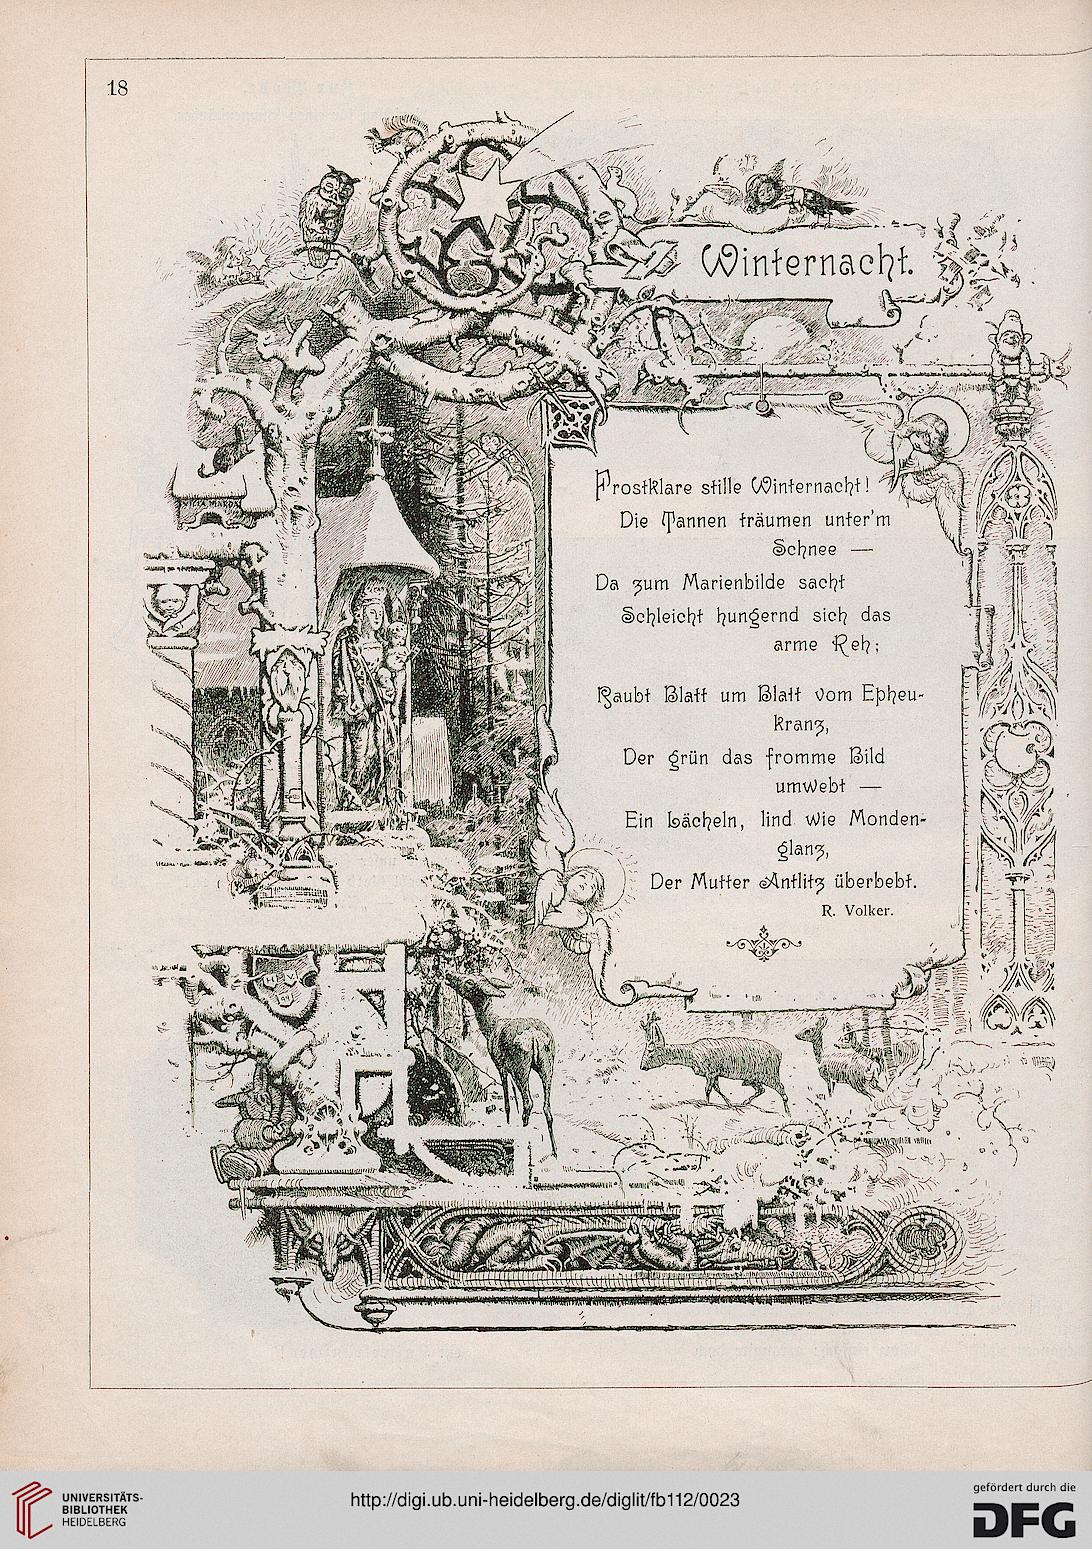 18
Winternacht.
Frostklare stille Winternacht!
Die Tannen träumen unter'm
Schnee —
Da zum Marienbilde sacht
Schleicht hungernd sich das
arme Reh;
Raubt Blatt um Blatt vom Epheu-
kranz,
Der grün das fromme Bild
umwebt —
Ein Lächeln, lind wie Monden-
glanz,
Der Mutter Antlitz überbebt.
R. Volker.
UNIVERSITÄTS-
BIBLIOTHEK
HEIDELBERG
http://digi.ub.uni-heidelberg.de/diglit/fb112/0023
gefördert durch die
DFG